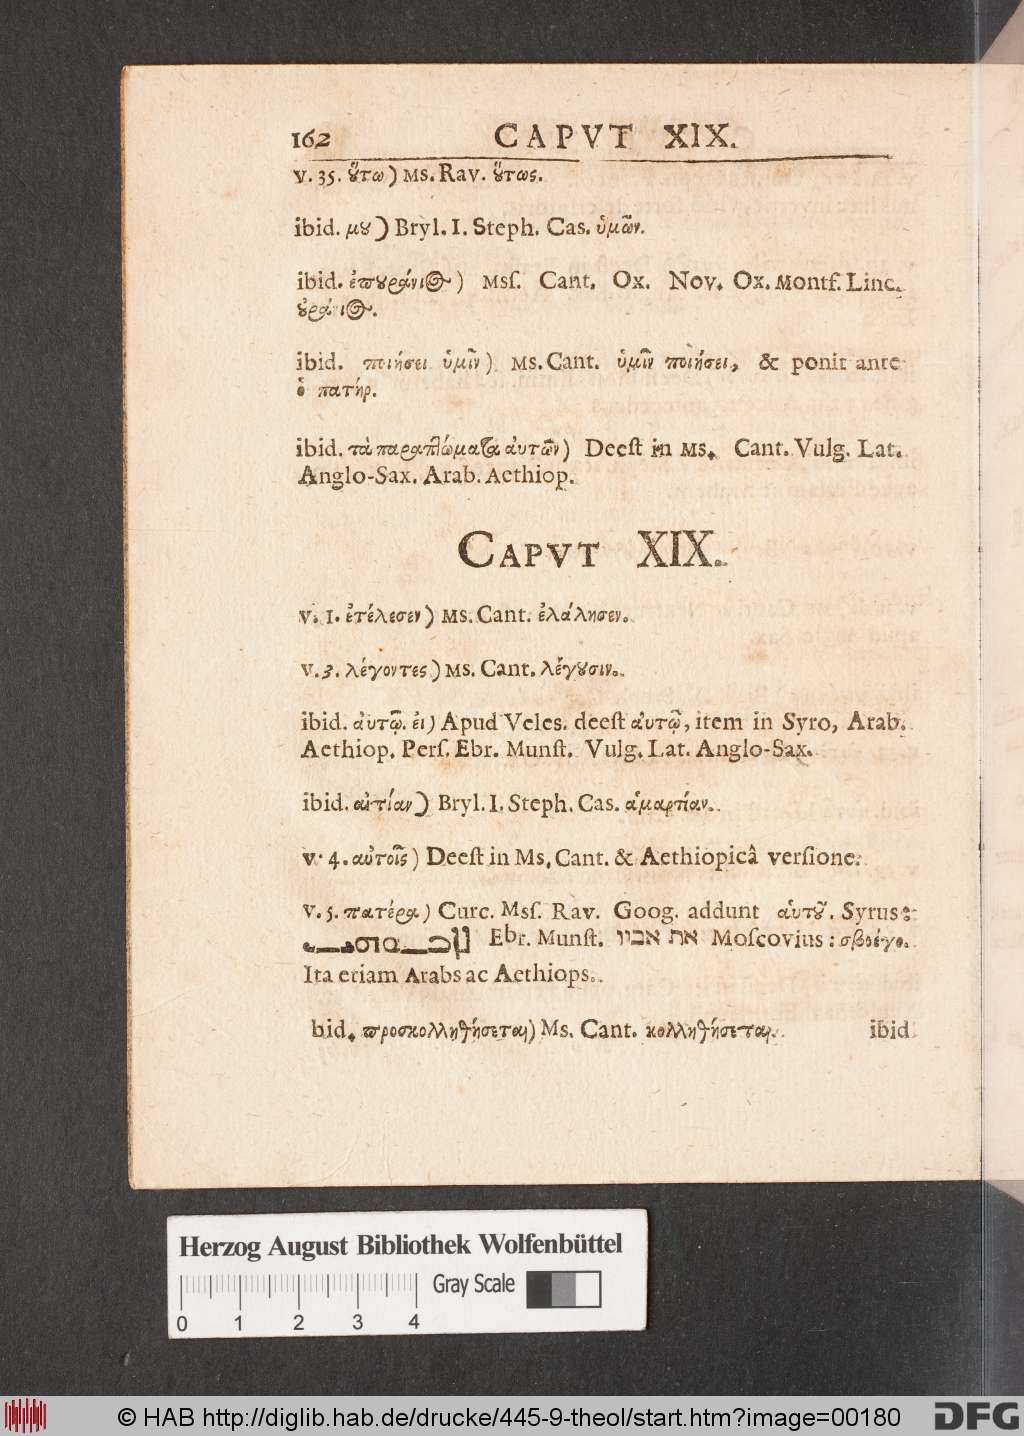 162 CAPVT XIX.
v. 35. ȣ̔́τω) Ms. Rav. ȣ̔́τως.
ibid. μȣ) Bryl. I. Steph. Cas. ὑμῶν.
ibid. ἐπȣράνι⊙) Msſ. Cant. Ox. Nov. Ox. Montf. Linc.
ȣ̓ράνι⊙.
ibid. ποιήσει ὑμῖν) Ms. Cant. ὑμῖν ποιήσει, & ponit ante
ὁ πατήρ.
ibid. τὰ παραπτώματα ἀυτῶν) Deeſt in Ms. Cant. Vulg. Lat.
Anglo-Sax. Arab. Aethiop.
CAPVT XIX.
v. 1. ἐτέλεσεν) Ms. Cant. ἐλάλησεν.
v. 3. λέγοντες) Ms. Cant. λέγȣσιν.
ibid. ἀυτῷ. ἐι) Apud Veles. deeſt ἀυτῷ, item in Syro, Arab.
Aethiop. Perſ. Ebr. Munſt. Vulg. Lat. Anglo-Sax.
ibid. αἰτίαν) Bryl. I. Steph. Cas. ἁμαρτίαν.
v. 4. αὐτοῖς) Deeſt in Ms. Cant. & Aethiopicâ verſione.
v. 5. πατέρα) Curc. Msſ. Rav. Goog. addunt ἁυτȣ͂. Syrus:
Ebr. Munſt. את אביו Moſcovius: σβοέγο.
Ita etiam Arabs ac Aethiops.
bid. προσκολληθήσεται) Ms. Cant. κολληθήσεται.
ibid
Herzog August Bibliothek Wolfenbüttel
Gray Scale
0 1 2 3 4
© HAB http://diglib.hab.de/drucke/445-9-theol/start.htm?image=00180
DFG